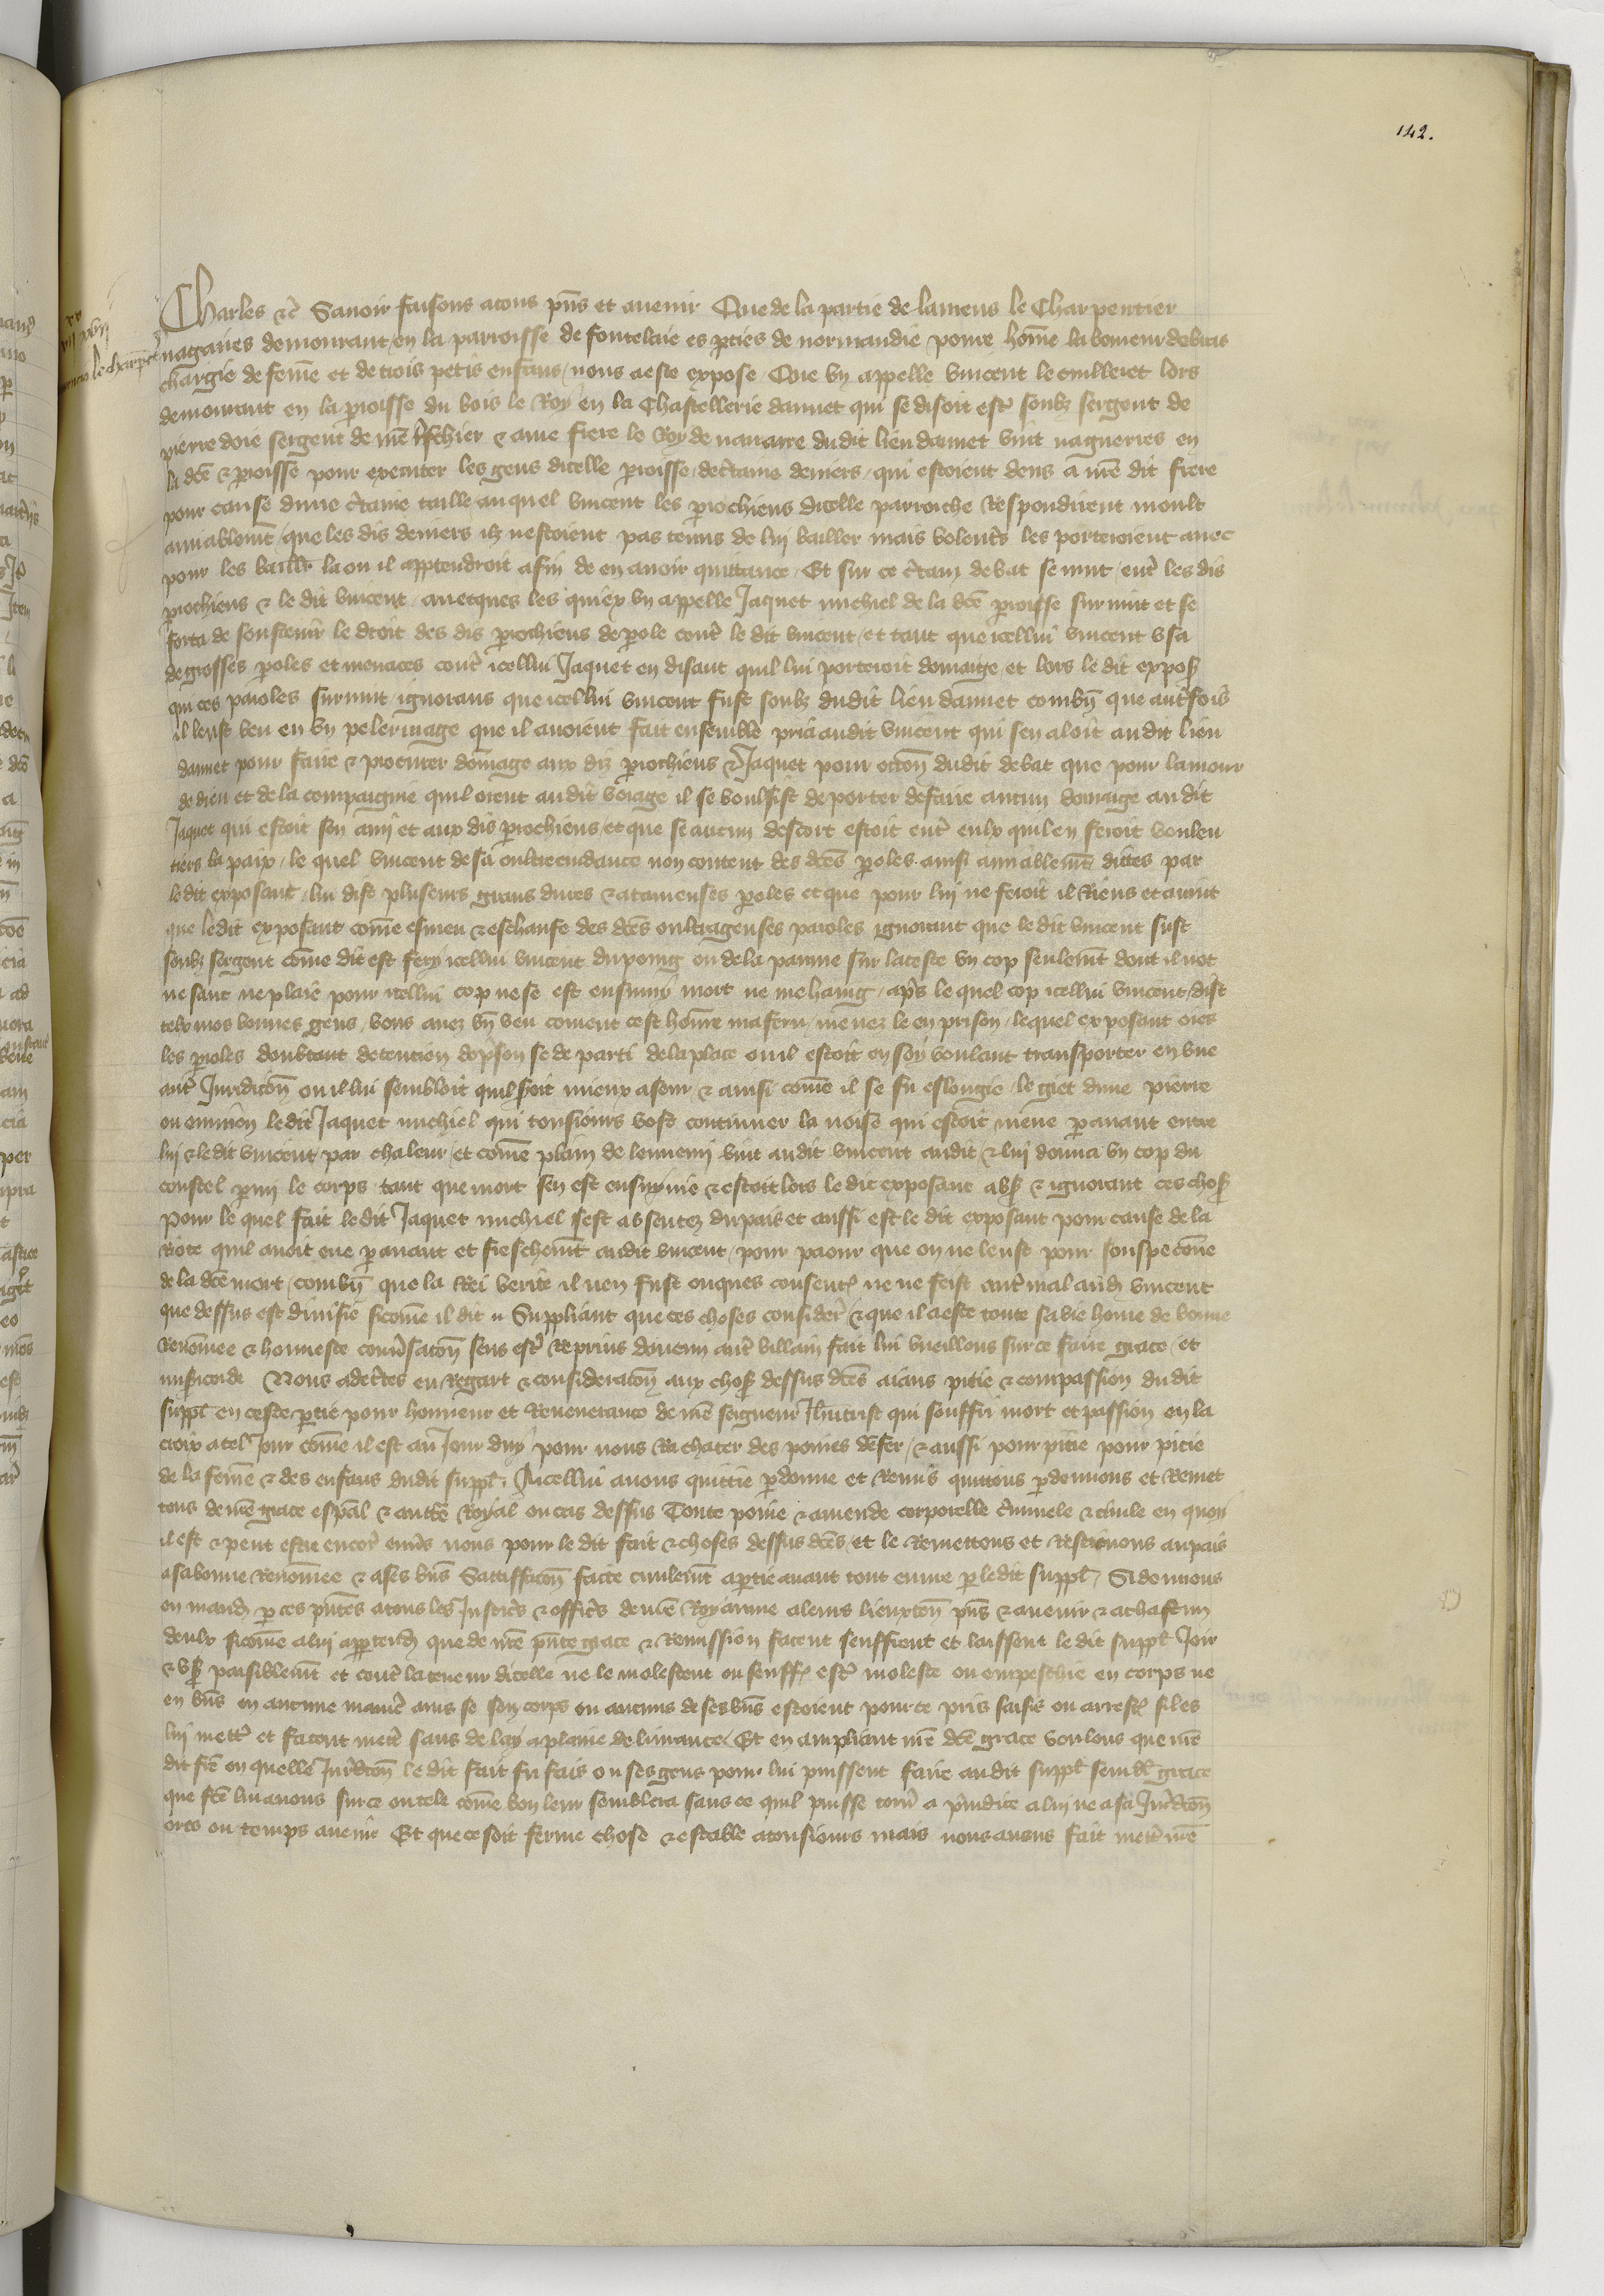 142.
Charles &c̃ Sauoir faisons a tous pñs et auenir Que de la partie de Lamens le Charpentier
nagaires demourant en la parroisse de fontelaie es p̃ties de normandie poure hom̃e laboureur de bras
chargie de fem̃e et de trois petis enfans / nous a este expose Que vn appelle vincent le cuilleret lors
demourant en la p̃roisse du bois le Roy en la Chastellerie dannet qui se disoit estr̃ soubz sergent de
pierre doie sergent de nr̃e tr̃schier & ame frere le Roy de nauarre dudit lieu dannet vint nagueries en
la dc̃e p̃roisse pour executer les gens dicelle p̃roisse / de c̃taine deniers / qui estoient deus a nr̃e dit frere
pour cause dune c̃taine taille auquel vincent les p̃rochiens dicelle parroiche Respondirent moult
amiablem̃t / que les dis deniers ilz nestoient pas tenus de lui bailler mais volent̃s les porteroient auec
pour les baillr̃ la ou il apptendroit afin de en auoir quittance / Et sur ce c̃tain debat se mut / ent̃ les dis
p̃rochiens & le dit vincent / auecques les quiex vn appelle Jaquet michiel de la dc̃e p̃roisse suruint et se
forca de soustenir le droit des dis p̃rochiens de p̃ole cont̃ le dit vincent / et tant que icellui vincent vsa
de grosses p̃oles et menaces cont̃ icellui Jaquet en disant quil lui porteroit domaige / et lors le dit expos̃
qui ces paroles suruint / ignorans que icellui vincent fust soubz dudit lieu dannet combñ que aut̃fois
il leust veu en vn pelerinage que il auoient fait ensemble pria audit vincent qui sen aloit au dit lieu
dannet pour faire & procurer dom̃age aux diz p̃rochiens & Jaquet pour occoñ dudit debat que pour lamour
de dieu et de la compaignie quil orent au dit voiage il se voulsist deporter de faire aucun domaige au dit
Jaquet qui estoit son ami et aux dis p̃rochiens / et que se aucun descort estoit ent̃ eulx quil en feroit voulen
tiers la paix / le quel vincent de sa oultrecuidance non content des dc̃es p̃oles ainsi amiablem̃t dittes par
le dit exposant / lui dist plusieurs grans dures & atameuses p̃oles et que pour lui ne feroit il Riens et auint
que le dit exposant com̃e esmeu & eschaufe des dc̃es oultrageuses paroles ignorant que le dit vincent fust
soubz sergent com̃e dit est fery icellui vincent du poing ou de la paume sur la teste vn cop seulem̃t dont il not
ne sanc ne plaie pour icellui cop ne se est ensuiuy mort ne mehaing / ap̃s le quel cop icellui vincent / dist
telx mos bonnes gens / vous auez bñ veu coment cest hom̃e ma feru / menez le en prison / lequel exposant oies
les p̃oles doubtant detencion de p̃son se de parti de la place ou il estoit en soy voulant transporter en vne
aut̃ Juridicoñ ou il lui sembloit quil feist mieux a seur & ainsi com̃e il se fu eslongie / le giet dune pierre
ou enuiron le dit Jaquet michiel qui tousiours vost continuer la noise qui estoit meue p̃auant entre
lui & le dit vincent / par chaleur / et com̃e plain de lennemi vint au dit vincent audit & lui donna vn cop du
coustel p̃mi le corps tant que mort sen est ensuyuie & estoit lors le dit exposant abs̃ & ignorant ces chos̃
Pour le quel fait le dit Jaquet michiel sest absentez du pais et aussi est le dit exposant pour cause de la
Riote quil auoit eue p̃auant et freschem̃t audit vincent / pour paour que on ne leust pour souspeconne
de la dc̃e mort / combñ que la Rei verite il nen fust onques consent̃ ne ne feist aut̃ mal aud̃ vincent
que dessus est diuisie sicom̃e il dit Suppliant que ces choses consider̃ & que il a este toute sa vie home de bonne
Renom̃ee & honneste conu̾sacoñ sens estr̃ Reprins daucun aut̃ villain fait lui vueillons sur ce faire grace / et
misericorde Nous adc̃tes en Regart & consideracoñ aux chos̃ dessus dc̃es aians pitie & compassion du dit
suppl̃ en ceste p̃tie pour honneur et Reuenerance de nr̃e seigneur Jh̃ucrist qui souffri mort et passion en la
croix a tel Jour com̃e il est au Jour duy pour nous Rachater des poines denfer / & aussi pour pitie pour pitie
de la fem̃e & des enfans dudit suppl̃ / A icellui auons quittie p̃donne et Remis quittons p̃donnons et Remet
tons de nr̃e grace esp̃al & auct̃e Royal ou cas dessus Toute poine & amende corporelle c̃iminele & ciuile en quoy
il est & peut estre encor̃ enu̾s nous pour le dit fait & choses dessus dc̃es / et le Remettons et Restituons au pais
a sa bonne Renom̃ee & a ses bñs Sattiffacoñ faicte ciuilem̃t a p̃tie auant tout euure p̃ le dit suppl̃ / Si donnons
en mand̃ p̃ ces pñtes a tous les Justic̃s & offic̃s de nr̃e Royaume a leurs lieuxteñ pñs & auenir & a chascun
deulx sicom̃e a lui app̃tend̃ que de nr̃e pñte grace & Remission facent seuffrent et laissent le dit suppl̃ Joir
& vs̃ paisiblem̃t et cont̃ la teneur dicelle ne le molestent ou seuff̃ estr̃ moleste ou empeschie en corps ne
en bñs en aucune manĩe ains se son corps ou aucuns de ses bñs estoient pour ce pris saisis ou arrest̃ si les
lui mett̃ et facent mett̃ sans delay a plaine deliurance / Et en ampliant nr̃e dc̃e grace voulons que nr̃e
dit fr̃e en quelle Jur̃dicoñ le dit fait fu fais ou ses gens pour lui puissent faire au dit suppl̃ sembl̃ grace
que fc̃e lui auons sur ce ou tele com̃e bon leur semblera sans ce quil puisse torn̾ a p̃iudice a lui ne a sa Jur̃dicoñ
ores ou temps auenir Et que ce soit ferme chose & estable a tousiours mais nous auons fait mett̃ nr̃e